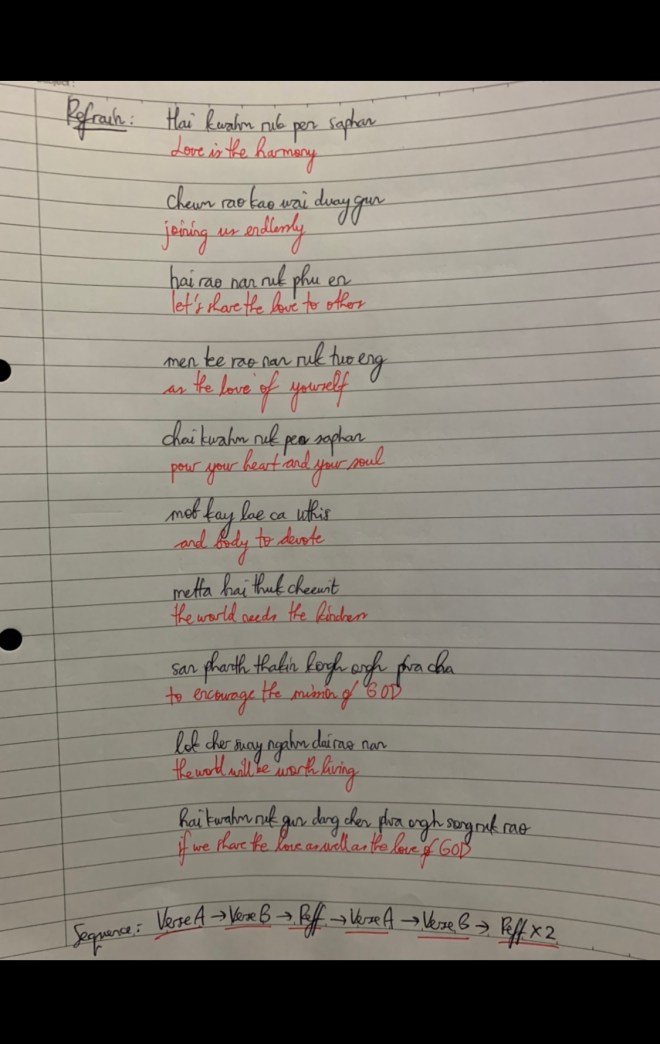 Refrain: Hai kwahm ruk pen saphan
Love is the harmony
cheun rao kao wai duay gun
joining us endlessly
hai rao nan ruk phu en
let's share the love to others
men tee rao nan ruk tuo eng
as the love of yourself
chai kwahm ruk pen saphan
pour your heart and your soul
mob kay lae ca uthis
and body to devote
metta hai thuk cheewit
the world needs the kindness
san pharth thakin kongh ongh phra cha
to encourage the mission of GOD
lok cher suay ngahm dai rao nan
the world will be worth living
hai kwahm ruk gun dang chen phra ongh song ruk rao
if we share the love as well as the love of GOD
Sequence: Verse A → Verse B → Reff → Verse A → Verse B → Reff x 2